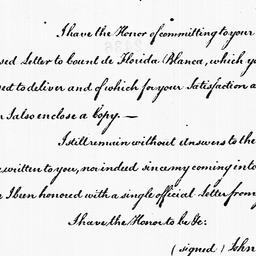 I have the Honor of committing to your
sed Letter to Count de Florida Blanca, which yo
sed to deliver and of which for your Satisfaction a
I also enclose a Copy. —
I still remain without Answers to the
written to you, nor indeed since my coming into
I been honored with a single official Letter from
I have the Honor to be &c:
(signed) John